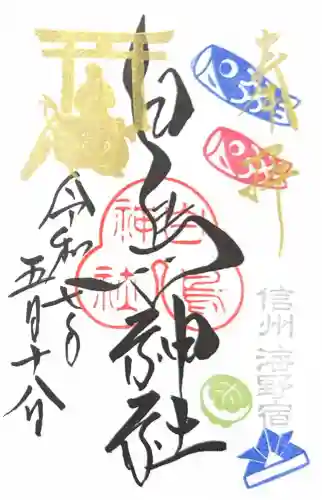 奉拝
信州 海野宿
白鳥神社
白鳥
神社
令和七年
五月十八日